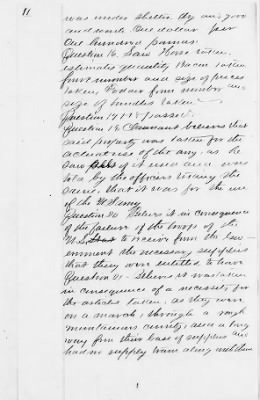 11
was under shelter dry and good
and worth One dollar per
One hundred pounds.
Question 16. Saw Horse taken,
estimated quantity Bacon taken
from number and size of pieces
taken, Fodder from number and
size of bundles taken
Question 17 & 18 passed.
Question 19. Claimant believes that
said property was taken for the
actual use of the army, as the
same of used and was
told by the officers taking the
same, that it was for the use
of the U.S. Army
Question 20 Believes it in consequence
of the failure of the troops of the
U.S. to receive from the Gov-
ernment the necessary supplies
that they were entitled to have
Question 21. Believes it was taken
in consequence of a necessity for
the articles taken, as they were
on a march through a rough
mountainous country, and a long
way from their base of supplies and
had no supply train along with them